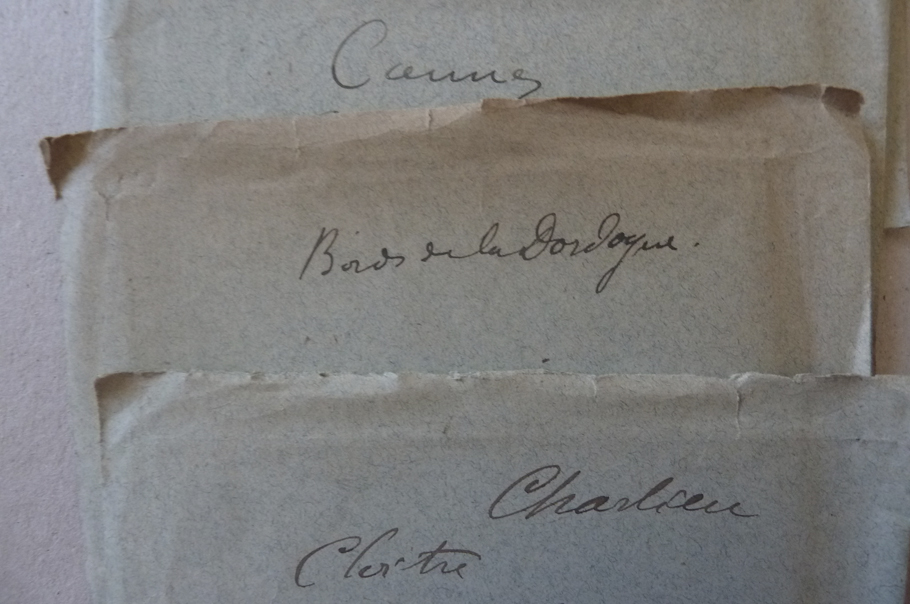 Cannes
Bords de la Dordogne.
Charlieu
Cloître